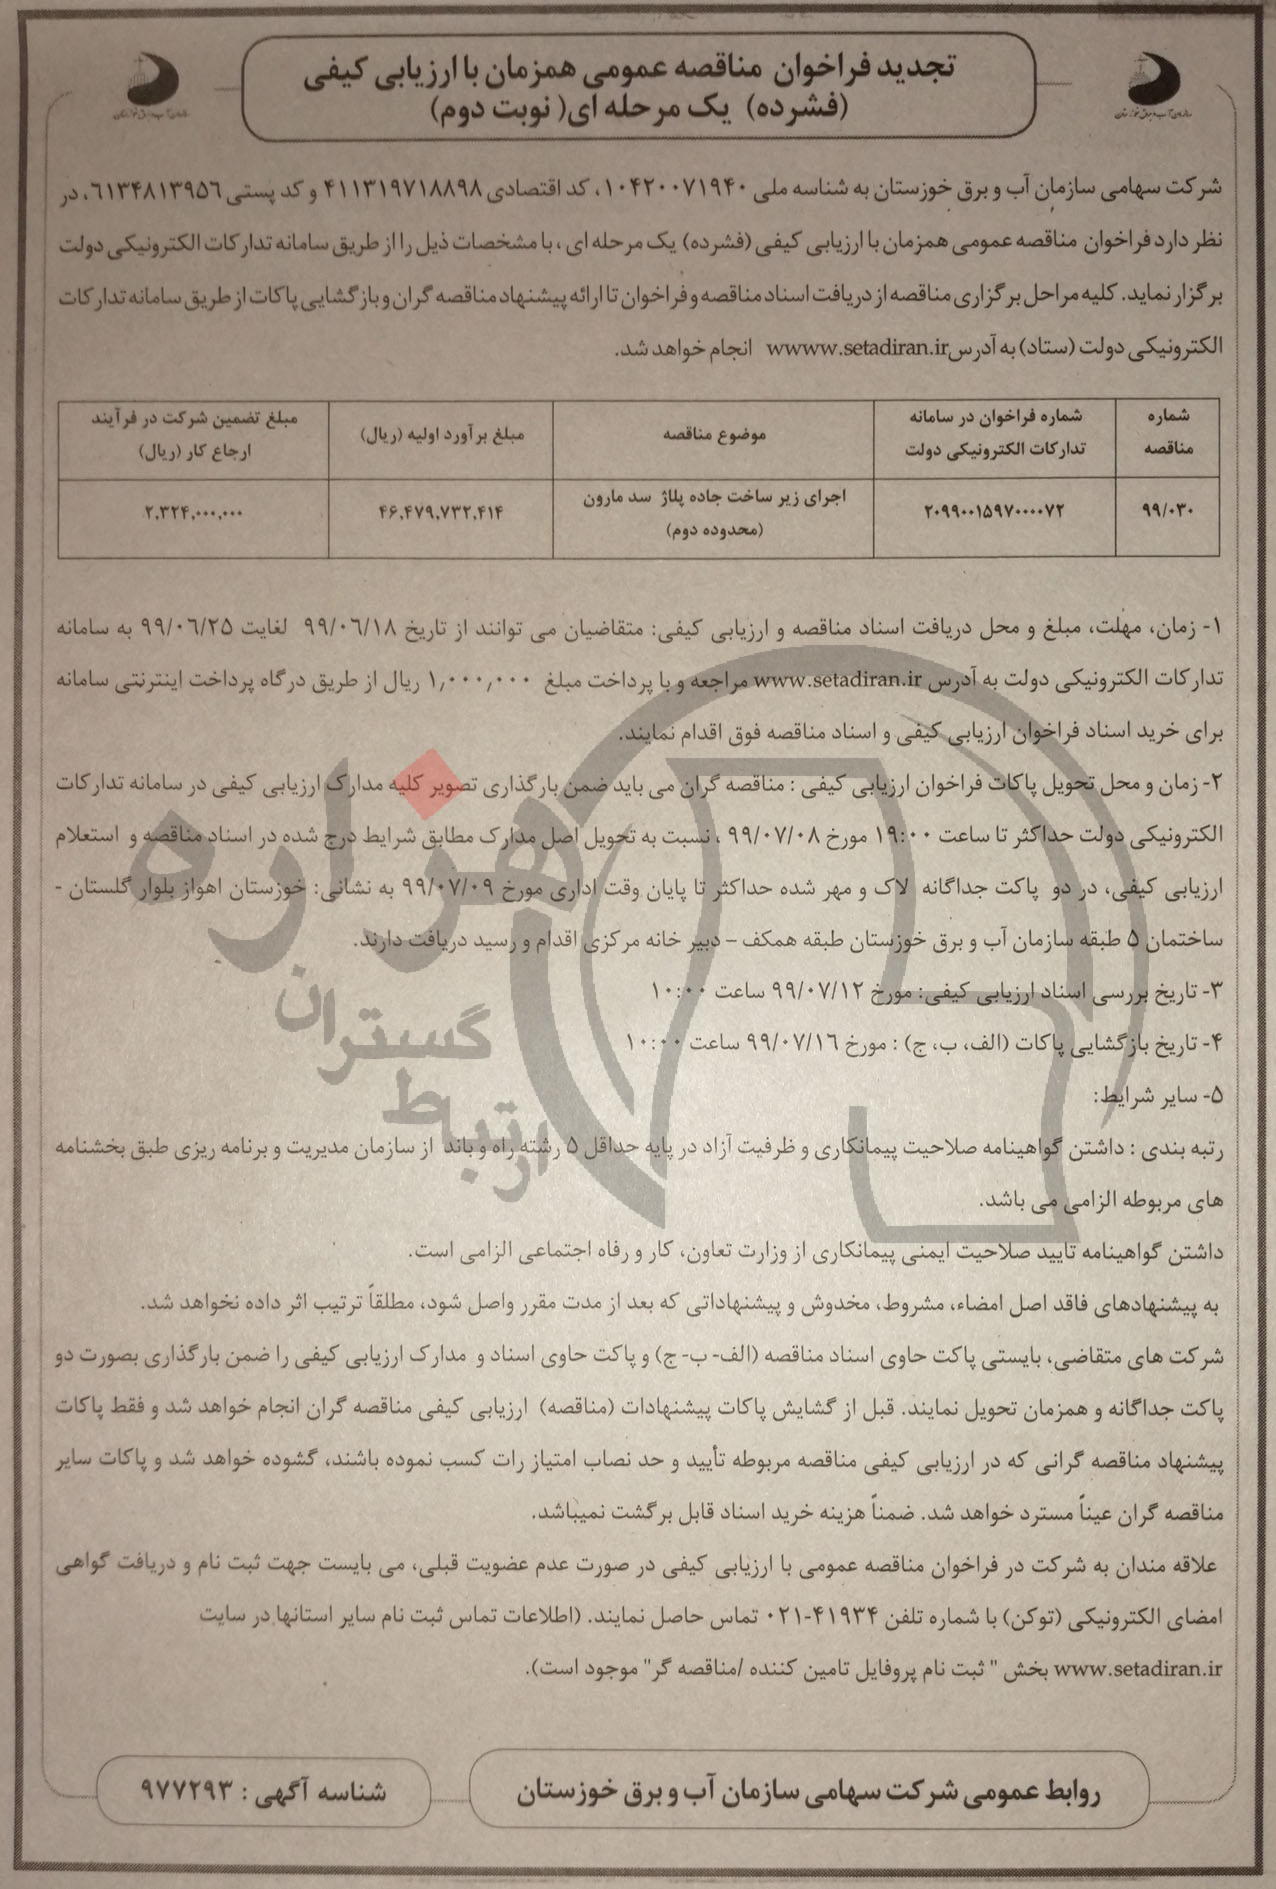 تجدید فراخوان مناقصه عمومی همزمان با ارزیابی کیفی
(فشرده) یک مرحله ای( نوبت دوم)
سازمان آب و برق خوزستان
سازمان آب و برق خوزستان
شرکت سهامی سازمان آب و برق خوزستان به شناسه ملی ۱۰۴۲۰۰۷۱۹۴۰، کد اقتصادی ۴۱۱۳۱۹۷۱۸۸۹۸ و کد پستی ۶۱۳۴۸۱۳۹۵۶، در
نظر دارد فراخوان مناقصه عمومی همزمان با ارزیابی کیفی (فشرده) یک مرحله ای ، با مشخصات ذیل را از طریق سامانه تدارکات الکترونیکی دولت
برگزار نماید. کلیه مراحل برگزاری مناقصه از دریافت اسناد مناقصه و فراخوان تا ارائه پیشنهاد مناقصه گران و بازگشایی پاکات از طریق سامانه تدارکات
الکترونیکی دولت (ستاد) به آدرس wwww.setadiran.ir انجام خواهد شد.
شماره مناقصه
شماره فراخوان در سامانه تدارکات الکترونیکی دولت
موضوع مناقصه
مبلغ برآورد اولیه (ریال)
مبلغ تضمین شرکت در فرآیند ارجاع کار (ریال)
۹۹/۰۳۰
۲۰۹۹۰۰۱۵۹۷۰۰۰۰۷۲
اجرای زیر ساخت جاده پلاژ سد مارون (محدوده دوم)
۴۶,۴۷۹,۷۳۲,۴۱۴
۲,۳۲۴,۰۰۰,۰۰۰
۱- زمان، مهلت، مبلغ و محل دریافت اسناد مناقصه و ارزیابی کیفی: متقاضیان می توانند از تاریخ ۹۹/۰۶/۱۸ لغایت ۹۹/۰۶/۲۵ به سامانه
تدارکات الکترونیکی دولت به آدرس www.setadiran.ir مراجعه و با پرداخت مبلغ ۱,۰۰۰,۰۰۰ ریال از طریق درگاه پرداخت اینترنتی سامانه
برای خرید اسناد فراخوان ارزیابی کیفی و اسناد مناقصه فوق اقدام نمایند.
۲- زمان و محل تحویل پاکات فراخوان ارزیابی کیفی : مناقصه گران می باید ضمن بارگذاری تصویر کلیه مدارک ارزیابی کیفی در سامانه تدارکات
الکترونیکی دولت حداکثر تا ساعت ۱۹:۰۰ مورخ ۹۹/۰۷/۰۸ ، نسبت به تحویل اصل مدارک مطابق شرایط درج شده در اسناد مناقصه و استعلام
ارزیابی کیفی، در دو پاکت جداگانه لاک و مهر شده حداکثر تا پایان وقت اداری مورخ ۹۹/۰۷/۰۹ به نشانی: خوزستان اهواز بلوار گلستان -
ساختمان ۵ طبقه سازمان آب و برق خوزستان طبقه همکف – دبیر خانه مرکزی اقدام و رسید دریافت دارند.
۳- تاریخ بررسی اسناد ارزیابی کیفی: مورخ ۹۹/۰۷/۱۲ ساعت ۱۰:۰۰
۴- تاریخ بازگشایی پاکات (الف، ب، ج) : مورخ ۹۹/۰۷/۱۶ ساعت ۱۰:۰۰
۵- سایر شرایط:
رتبه بندی : داشتن گواهینامه صلاحیت پیمانکاری و ظرفیت آزاد در پایه حداقل ۵ رشته راه و باند از سازمان مدیریت و برنامه ریزی طبق بخشنامه
های مربوطه الزامی می باشد.
داشتن گواهینامه تایید صلاحیت ایمنی پیمانکاری از وزارت تعاون، کار و رفاه اجتماعی الزامی است.
به پیشنهادهای فاقد اصل امضاء، مشروط، مخدوش و پیشنهاداتی که بعد از مدت مقرر واصل شود، مطلقاً ترتیب اثر داده نخواهد شد.
شرکت های متقاضی، بایستی پاکت حاوی اسناد مناقصه (الف- ب- ج) و پاکت حاوی اسناد و مدارک ارزیابی کیفی را ضمن بارگذاری بصورت دو
پاکت جداگانه و همزمان تحویل نمایند. قبل از گشایش پاکات پیشنهادات (مناقصه) ارزیابی کیفی مناقصه گران انجام خواهد شد و فقط پاکات
پیشنهاد مناقصه گرانی که در ارزیابی کیفی مناقصه مربوطه تأیید و حد نصاب امتیاز رات کسب نموده باشند، گشوده خواهد شد و پاکات سایر
مناقصه گران عیناً مسترد خواهد شد. ضمناً هزینه خرید اسناد قابل برگشت نمیباشد.
علاقه مندان به شرکت در فراخوان مناقصه عمومی با ارزیابی کیفی در صورت عدم عضویت قبلی، می بایست جهت ثبت نام و دریافت گواهی
امضای الکترونیکی (توکن) با شماره تلفن ۴۱۹۳۴-۰۲۱ تماس حاصل نمایند. (اطلاعات تماس ثبت نام سایر استانها در سایت
www.setadiran.ir بخش " ثبت نام پروفایل تامین کننده /مناقصه گر" موجود است).
روابط عمومی شرکت سهامی سازمان آب و برق خوزستان
شناسه آگهی : ۹۷۷۲۹۳
هزاره
گستران
ارتباط